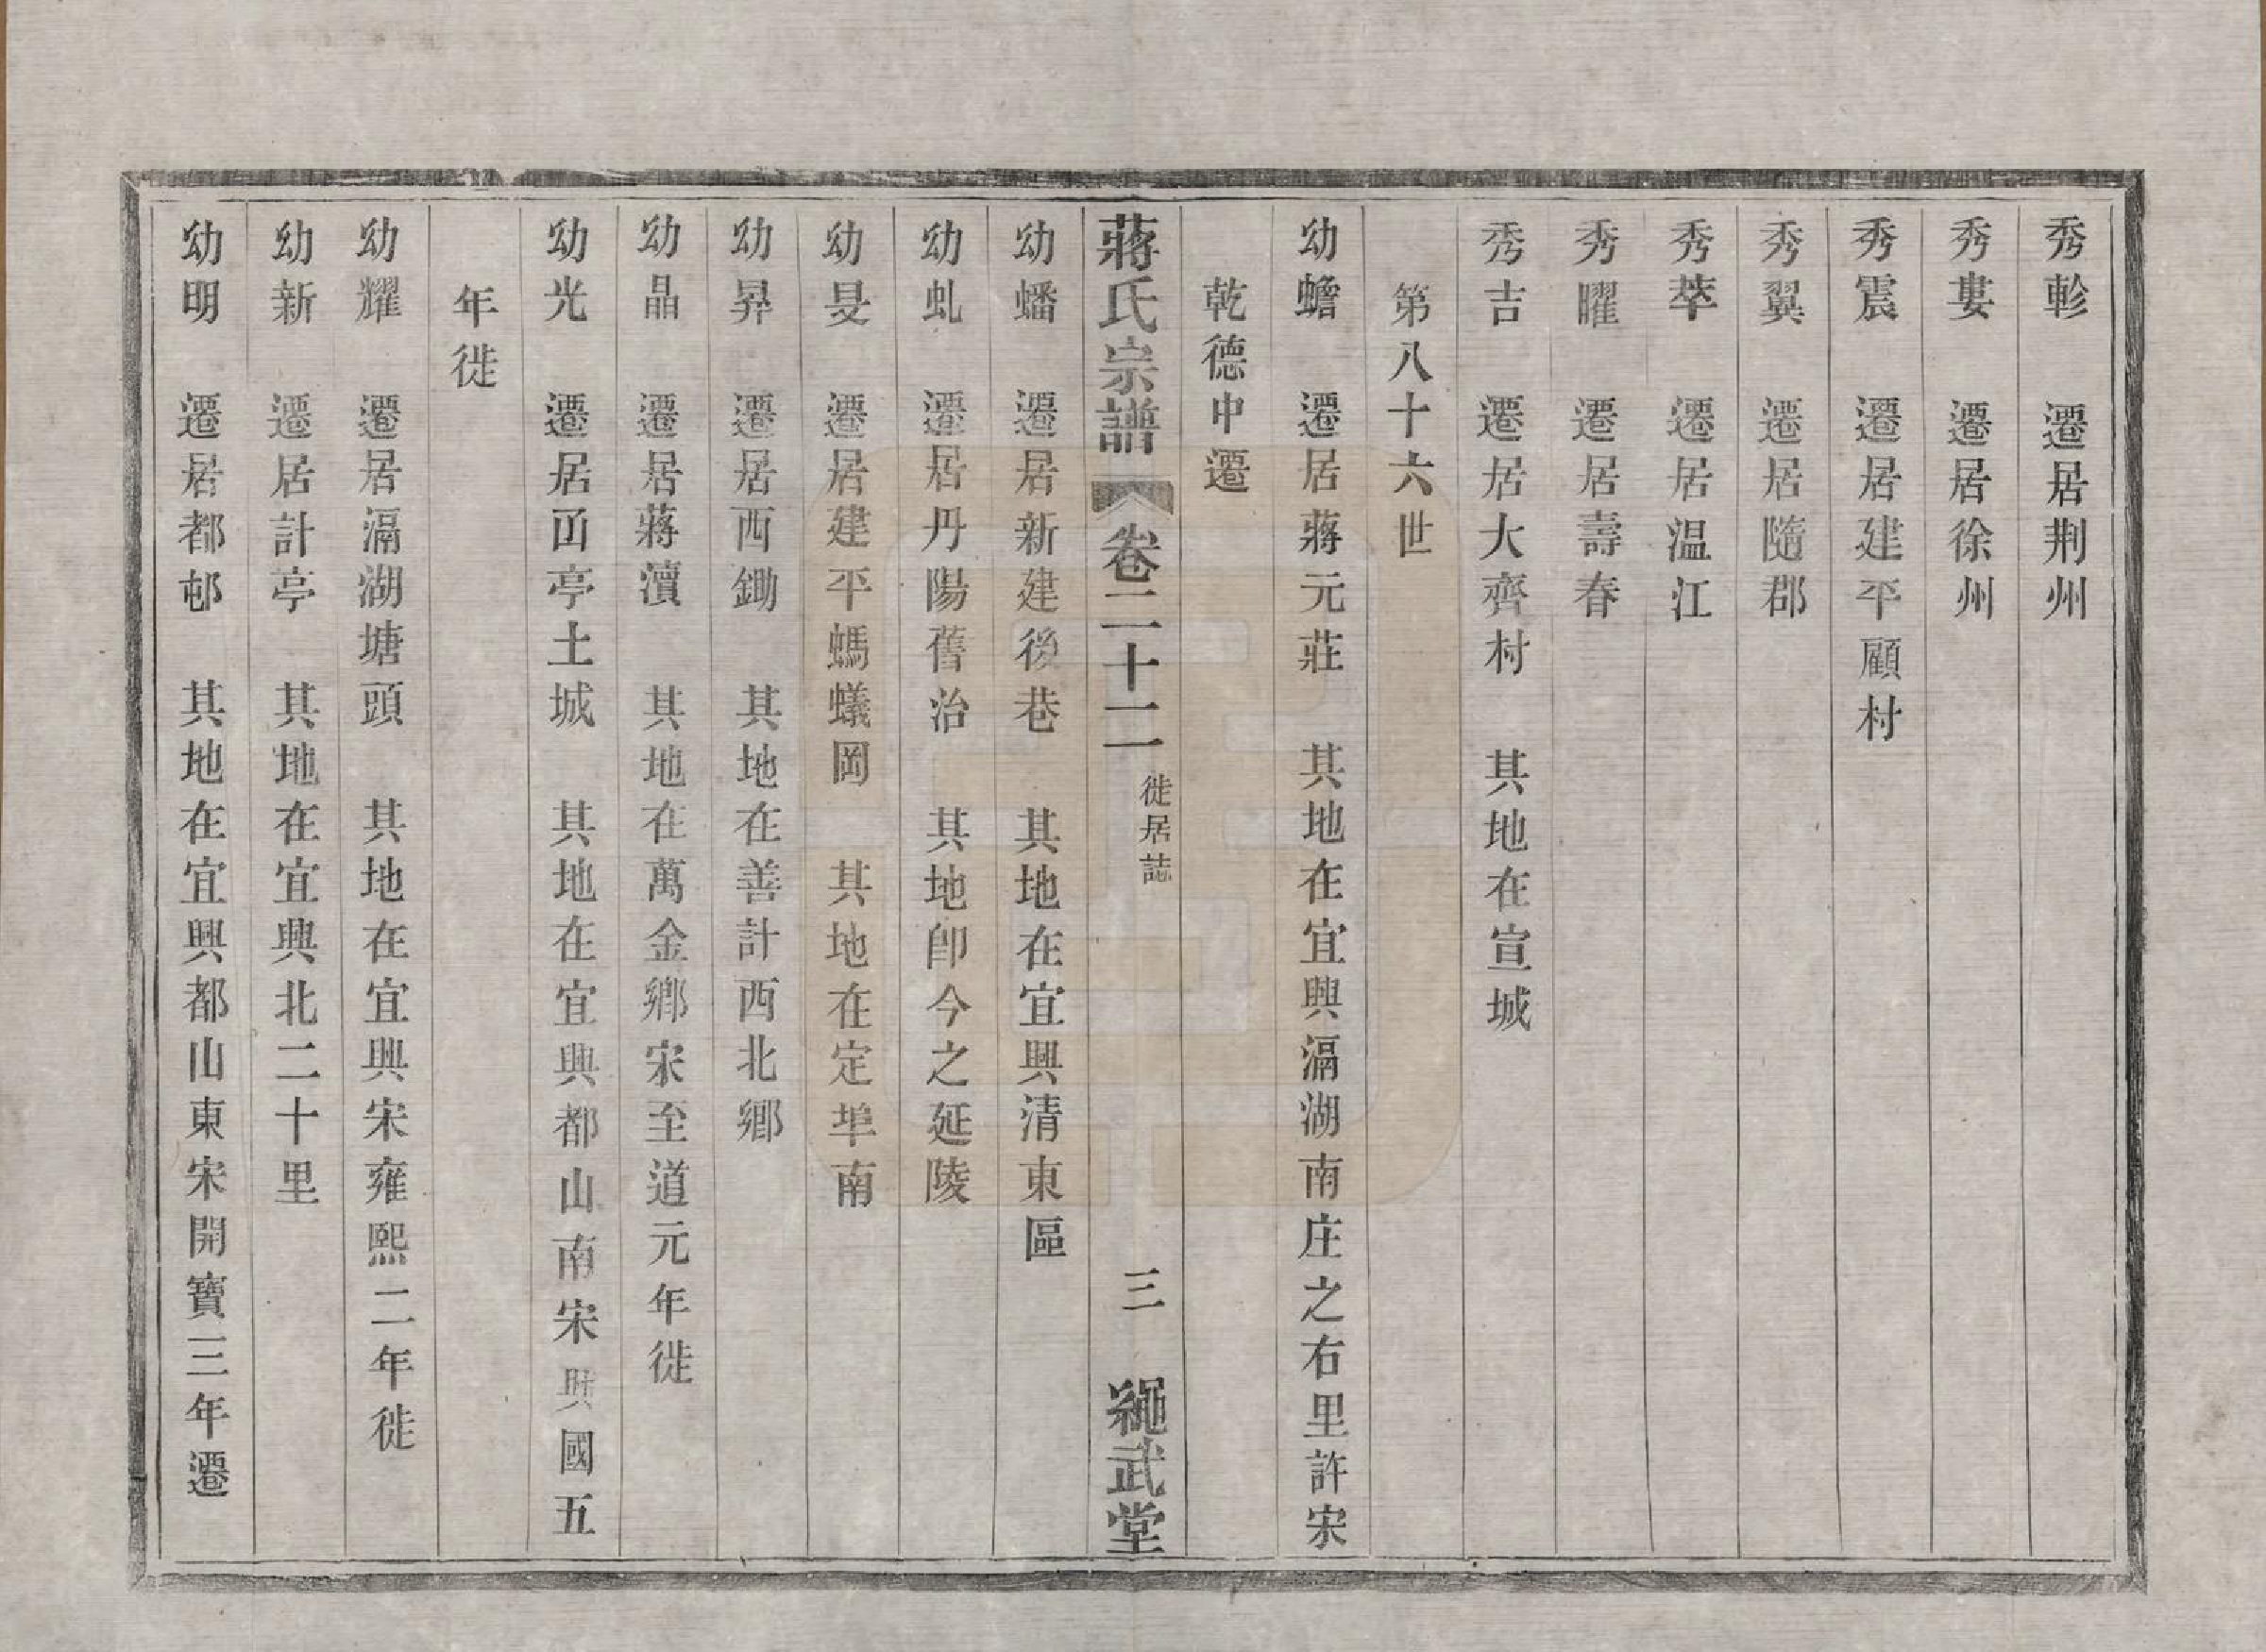 秀軫　遷居荆州
秀婁　遷居徐州
秀震　遷居建平顧村
秀翼　遷居隨郡
秀萃　遷居温江
秀曜　遷居壽春
秀吉　遷居大齊村　其地在宣城
第八十六世
幼蟾　遷居蔣元莊　其地在宜興滆湖南庄之右里許宋
乾德中遷
蔣氏宗譜　卷二十二　徙居誌　三　繩武堂
幼蟠　遷居新建後巷　其地在宜興清東區
幼虬　遷居丹陽舊治　其地卽今之延陵
幼旻　遷居建平螞蟻岡　其地在定埠南
幼昇　遷居西鋤　其地在善計西北鄉
幼晶　遷居蔣瀆　其地在萬金鄉宋至道元年徙
幼光　遷居亭土城　其地在宜興都山南宋興國五
年徙
幼耀　遷居滆湖塘頭　其地在宜興宋雍熙二年徙
幼新　遷居計亭　其地在宜興北二十里
幼明　遷居都邨　其地在宜興都山東宋開寶三年遷